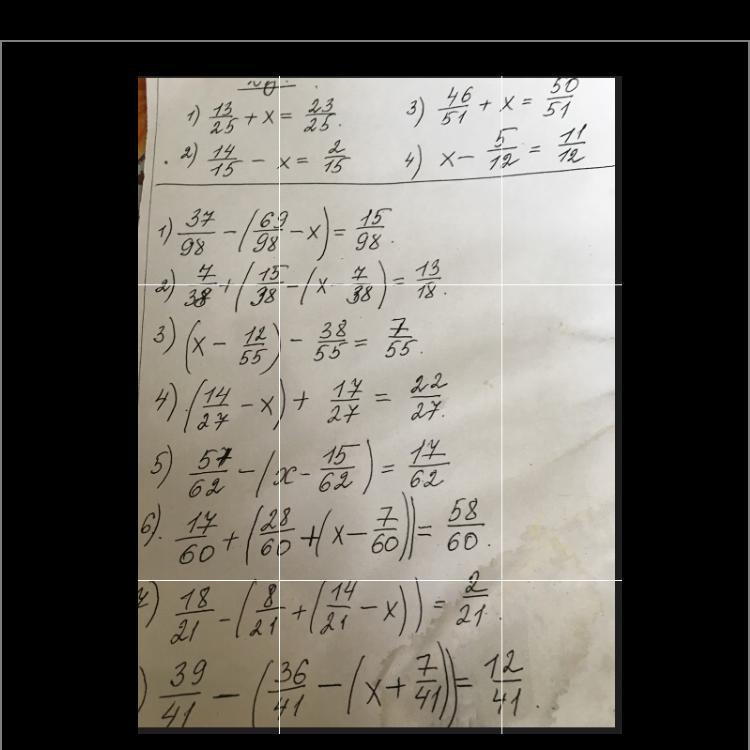 1) 13/25 + x = 23/25.
3) 46/51 + x = 50/51
2) 14/15 - x = 2/15
4) x - 5/12 = 11/12
1) 37/98 - (69/98 - x) = 15/98.
2) 7/38 + (15/38 - (x 7/38) = 13/18.
3) (x - 12/55) - 38/55 = 7/55.
4) (14/27 - x) + 17/27 = 22/27.
5) 57/62 - (x - 15/62) = 17/62
6). 17/60 + (28/60 + (x - 7/60)) = 58/60.
7) 18/21 - (8/21 + (14/21 - x)) = 2/21.
) 39/41 - (36/41 - (x + 7/41)) = 12/41.